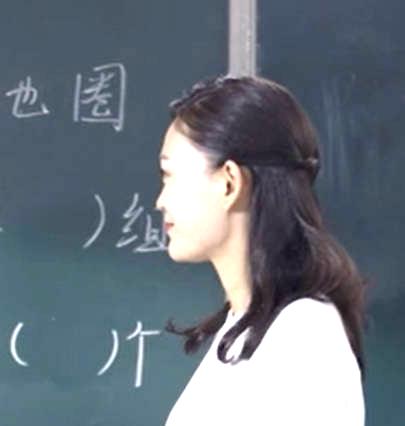 也圈
）组
（ ）个